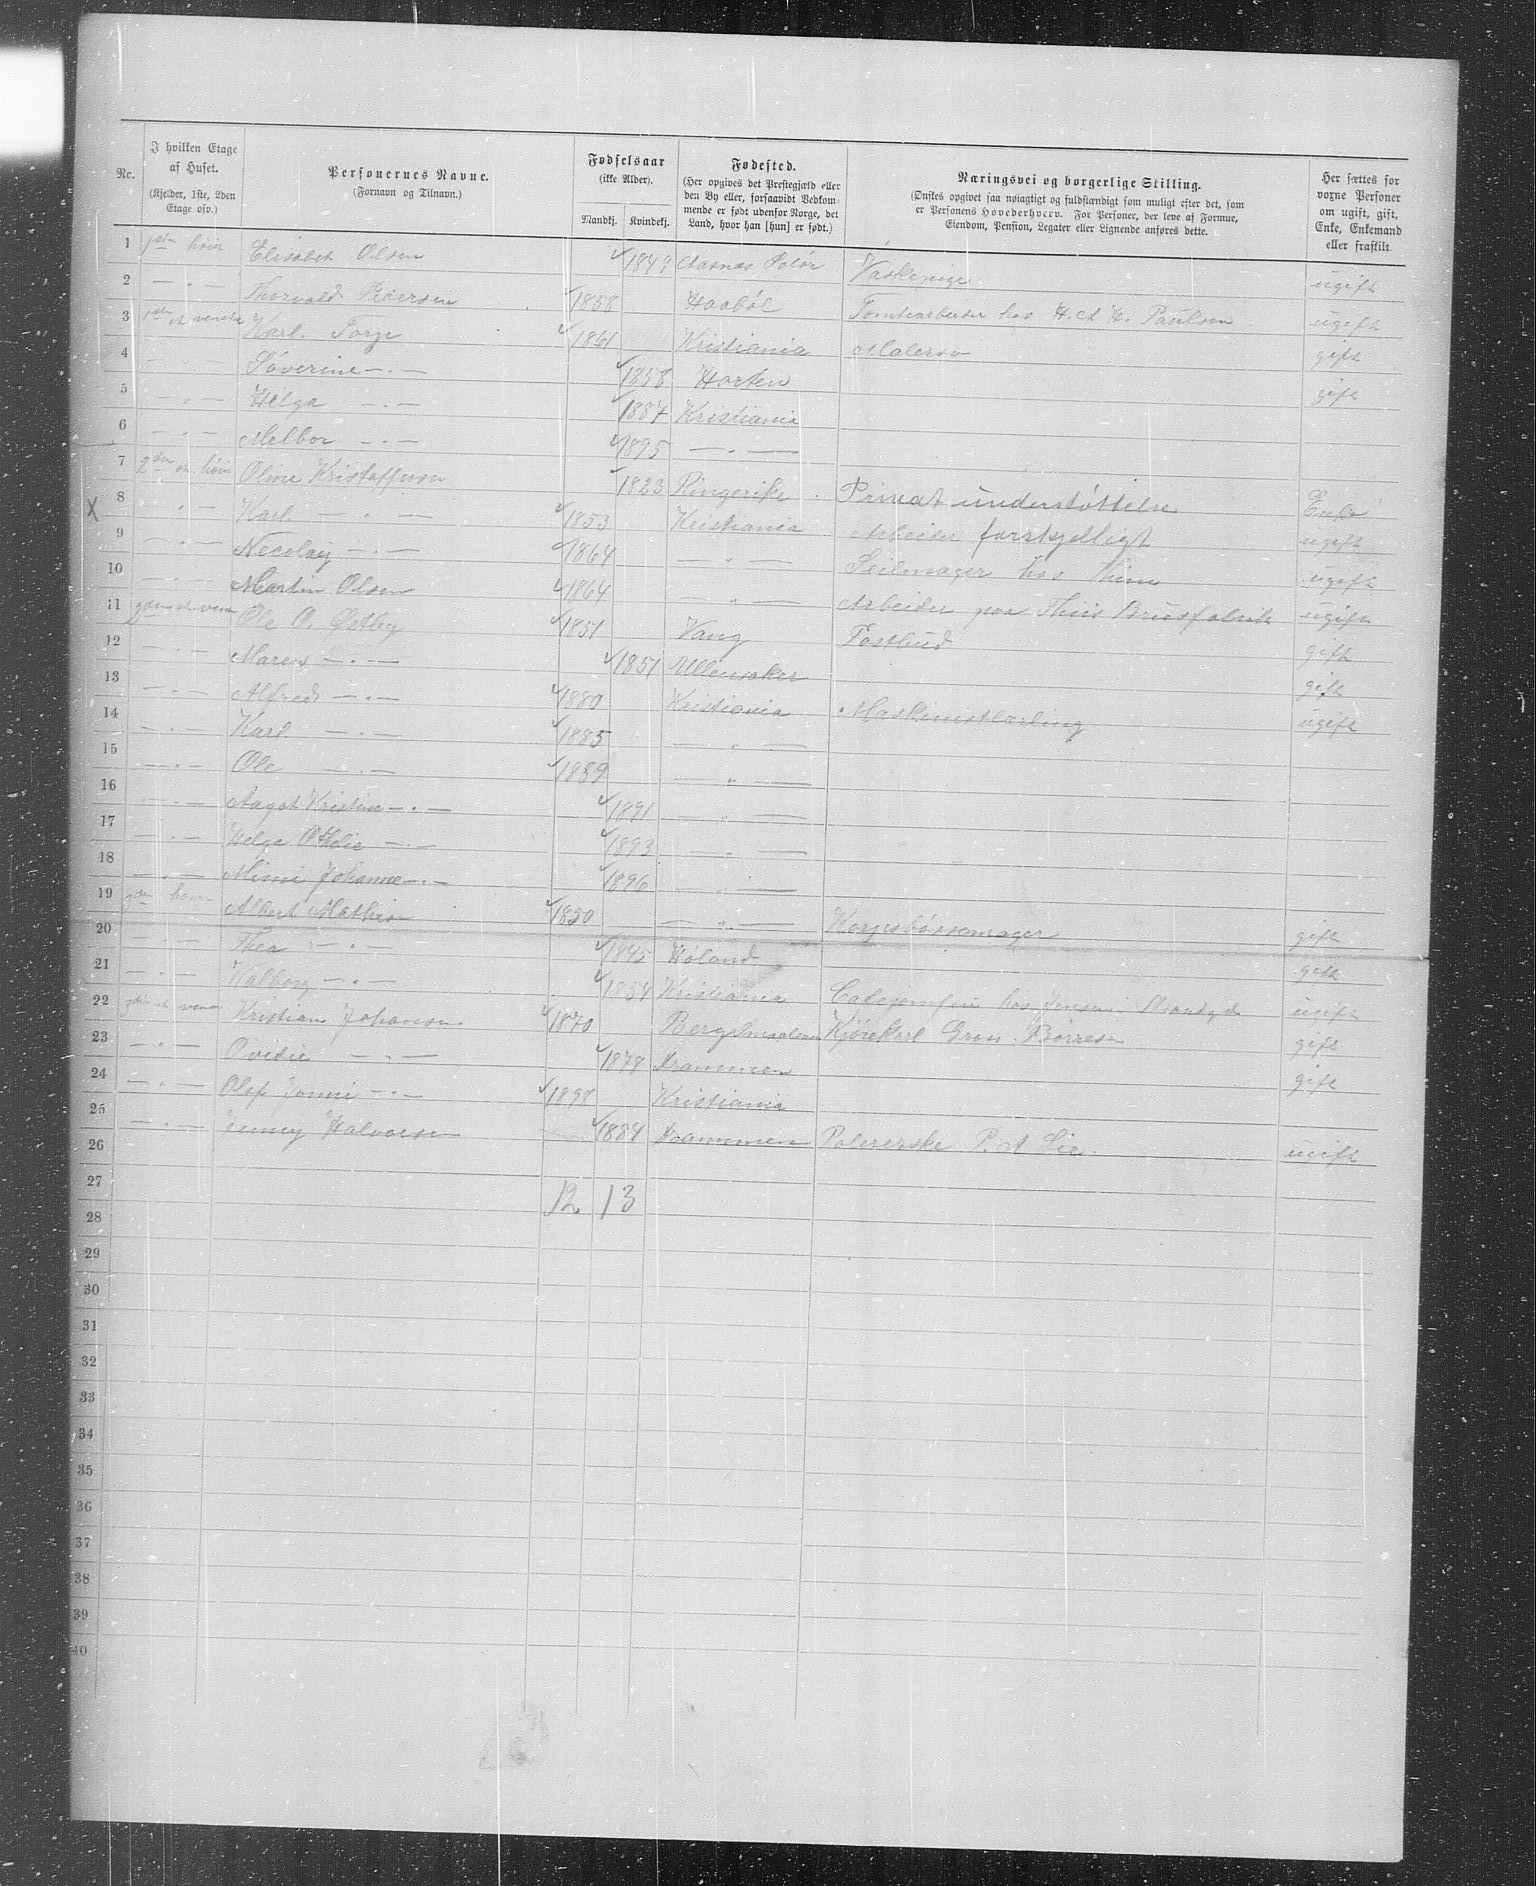 No. | I hvilken Etage af Huset. (Kjelder, 1ste, 2den Etage osv.) | Personernes Navne. (Fornavn og Tilnavn.) | Fødselsaar (ikke Alder). Mandkj. Kvindekj. | Fødested. (Her opgives det Prestegjæld eller den By eller, forsaavidt Vedkommende er født udenfor Norge, det Land, hvor han [hun] er født.) | Næringsvei og borgerlige Stilling. (Ønskes opgivet saa nøiagtigt og fuldstændigt som muligt efter det, som er Personens Hovederhverv. For Personer, der leve af Formue, Eiendom, Pension, Legater eller Lignende anføres dette. | Her sættes for voxne Personer om ugift, gift, Enke, Enkemand eller fraskilt
1 1ste høire Elisabet Olsen 1849 Aasnæs Solør Vaskepige ugift
2 — " — Thorvald Pedersen 1858 Haabøl Tomtearbeider hos H. A. H. Paulsen ugift
3 1ste et venstre Karl Torge 1861 Kristiania Malersv gift
4 — " — Søverine — " — 1858 Horten gift
5 — " — Helga — " — 1887 Kristiania
6 — " — Melbor — " — 1895 — " —
7 2den et. høire Oline Kristoffersen 1823 Ringerike Privat understøttelse Enke
X 8 — " — Karl — " — 1853 Kristiania Arbeider forskjelligt ugift
9 — " — Necolay — " — 1864 — " — Seilmager hos ugift
10 — " — Martin Olsen 1864 — " — Arbeider paa Thiis Brusfabrik ugift
11 2den et venst Ole O. Østby 1851 Vang Postbud gift
12 — " — Maren — " — 1851 Ullensaker gift
13 — " — Alfred — " — 1880 Kristiania Maskinistlærling ugift
14 — " — Karl — " — 1885 — " —
15 — " — Ole — " — 1889 — " —
16 — " — Aagot Kristine — " — 1891 — " —
17 — " — Helga Othelie — " — 1893 — " —
18 — " — Mimi Johanne — " — 1896 — " —
19 3die høire Albert Mathisen 1850 — " — Korpsbøssemager gift
20 — " — Thea — " — 1845 Høland gift
21 — " — Valborg — " — 1854 Kristiania Cafejomfru hos Jensen Strandgd ugift
22 3die et venst Kristian Johansen 1870 Berg Smaalenen Kjørekarl Gross. Børresen gift
23 — " — Ovidie — " — 1878 Drammen gift
24 — " — Olaf Jonni — " — 1898 Kristiania
25 — " — Jenny Halvorsen 1884 Drammen Polererske P. A. Lie. ugift
26
27 12 13
28
29
30
31
32
33
34
35
36
37
38
39
40